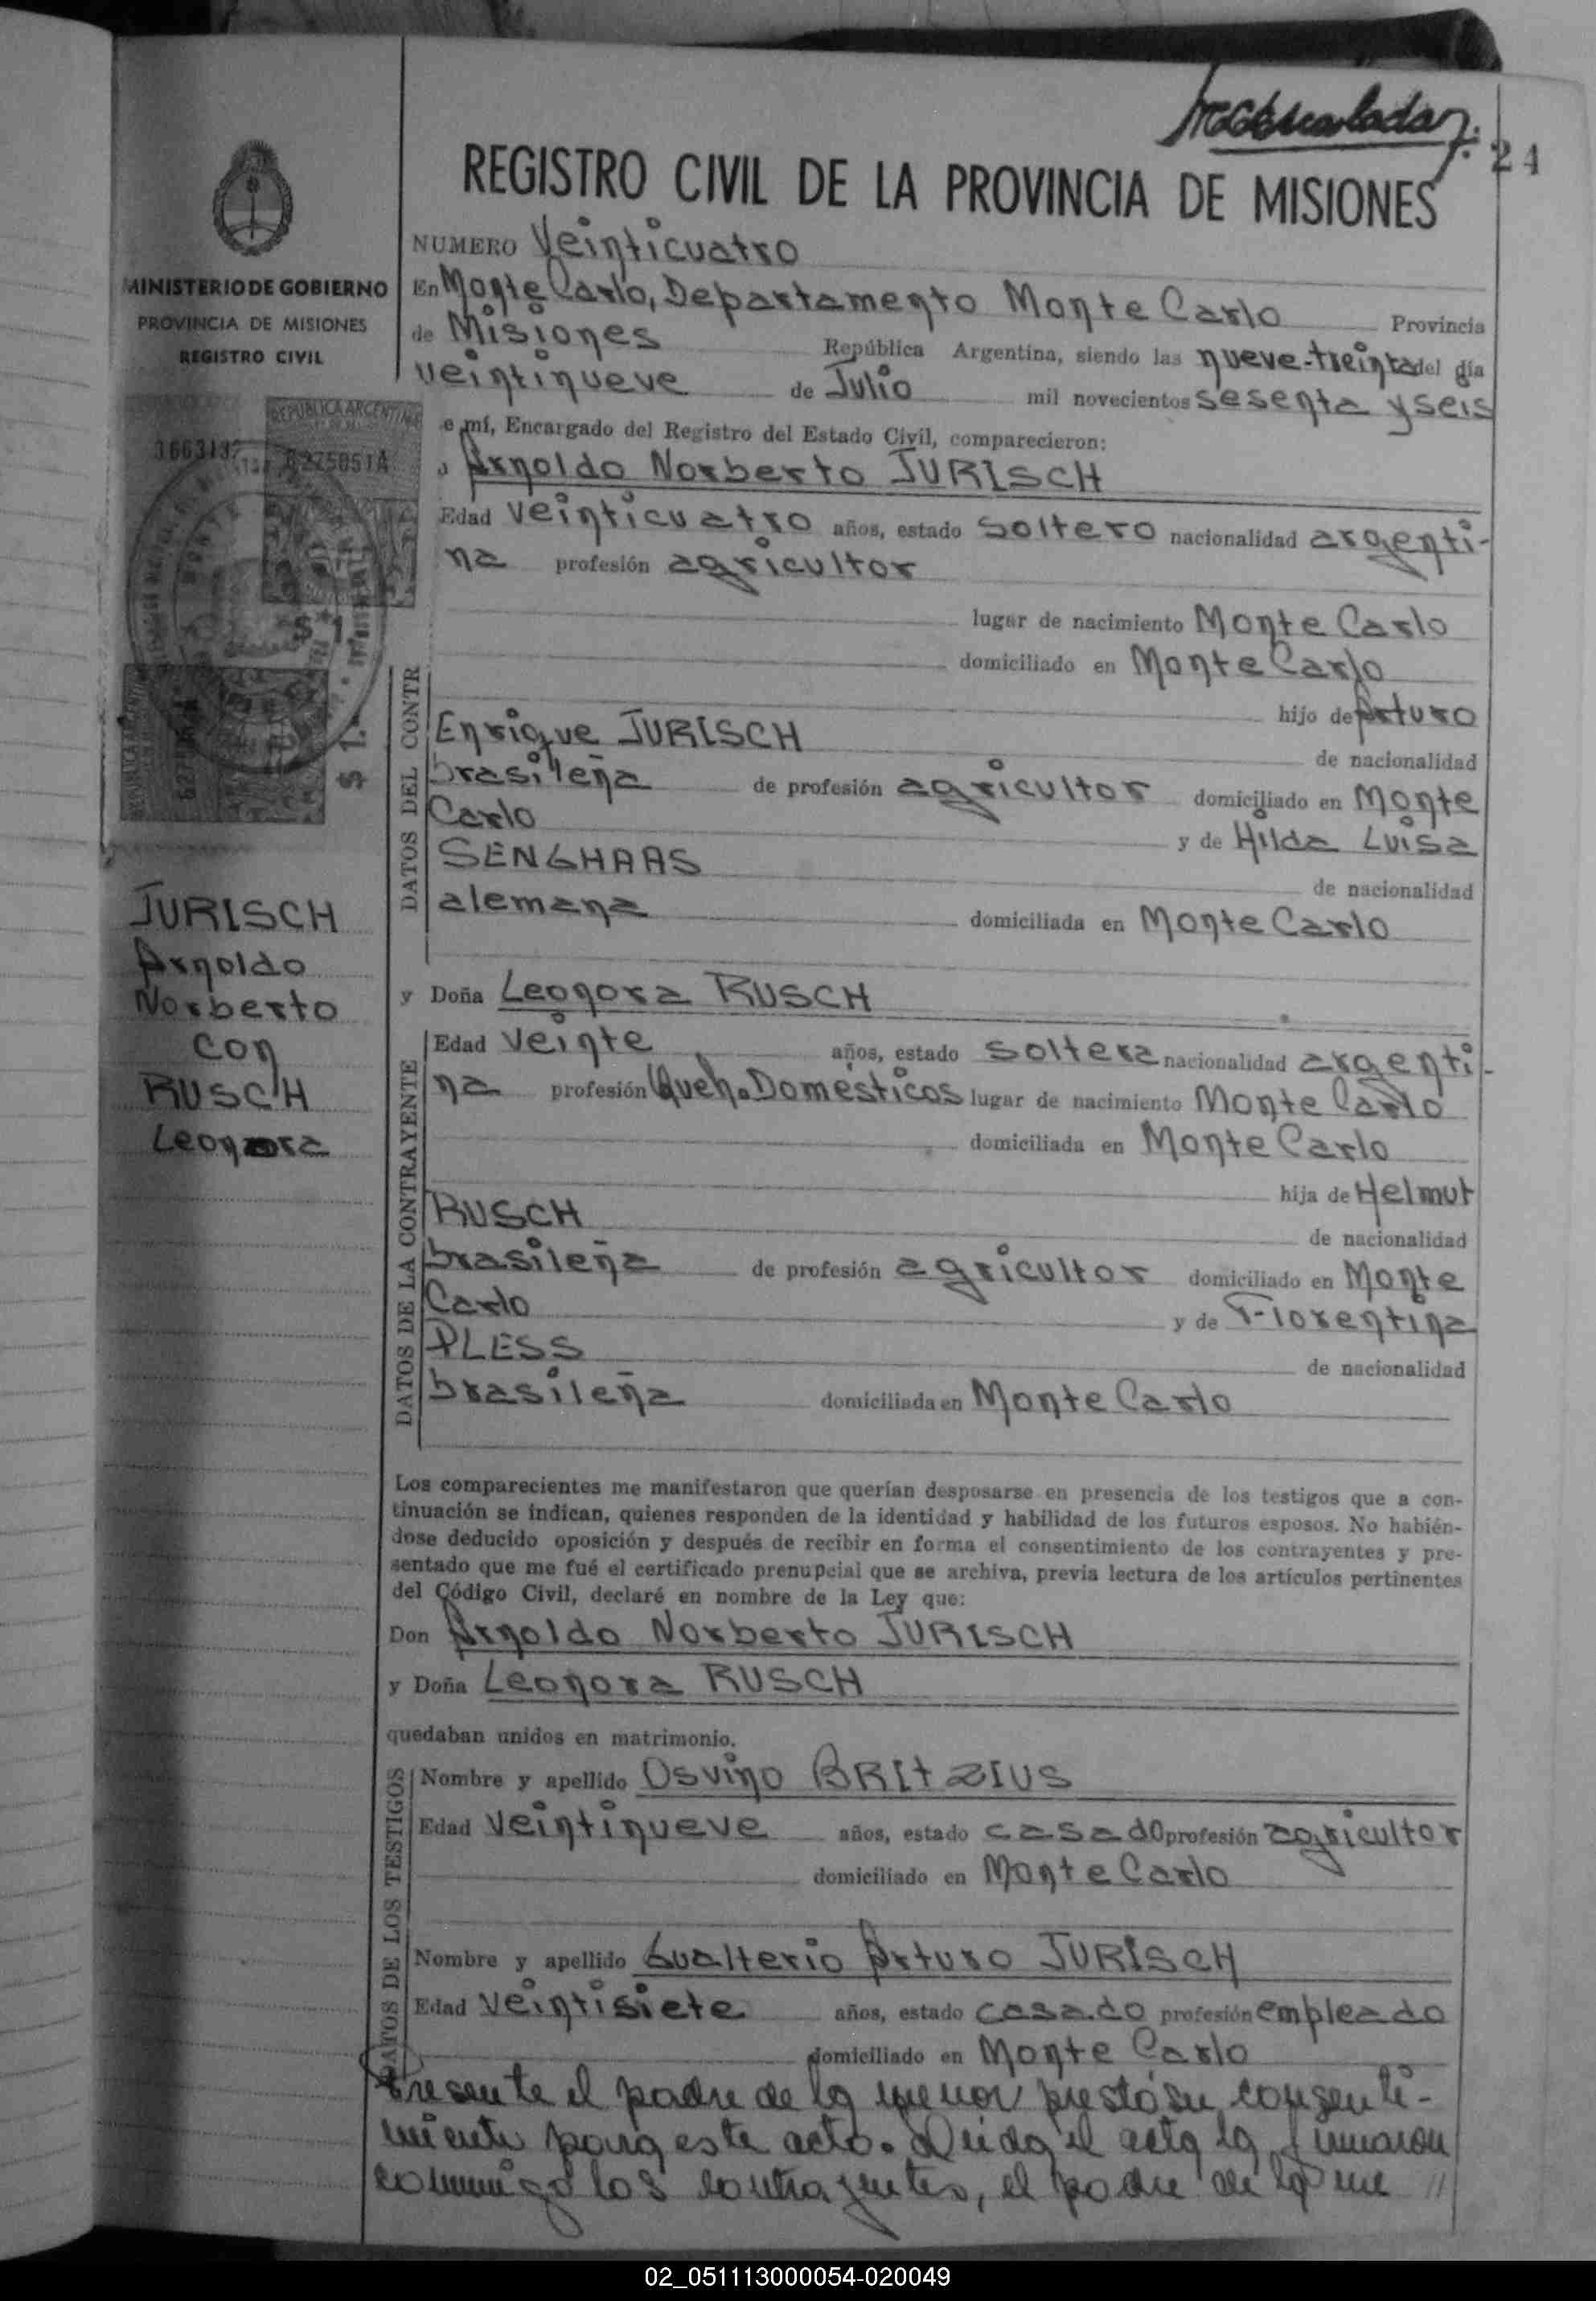 24
REGISTRO CIVIL DE LA PROVINCIA DE MISIONES
MINISTERIO DE GOBIERNO
PROVINCIA DE MISIONES
REGISTRO CIVIL
NUMERO Veinticuatro
En Monte Carlo, Departamento Monte Carlo Provincia
de Misiones República Argentina, siendo las nueve-treinta del día
veintinueve de Julio mil novecientos sesenta y seis
e mí, Encargado del Registro del Estado Civil, comparecieron:
Arnoldo Norberto JURISCH
Edad veinticuatro años, estado soltero nacionalidad argenti-
na profesión agricultor
lugar de nacimiento Monte Carlo
domiciliado en Monte Carlo
hijo de Arturo
Enrique JURISCH
de nacionalidad
brasileña de profesión agricultor domiciliado en Monte
Carlo y de Hilda Luisa
SENGHAAS
de nacionalidad
alemana domiciliada en Monte Carlo
DATOS DEL CONTR
REPUBLICA ARGENTINA
$ 1.
$ 1.
JURISCH
Arnoldo
Norberto
con
RUSCH
Leonora
y Doña Leonora RUSCH
Edad veinte años, estado soltera nacionalidad argenti-
na profesión Queh. Domésticos lugar de nacimiento Monte Carlo
domiciliada en Monte Carlo
hija de Helmut
RUSCH
de nacionalidad
brasileña de profesión agricultor domiciliado en Monte
Carlo y de Florentina
PLESS
de nacionalidad
brasileña domiciliada en Monte Carlo
DATOS DE LA CONTRAYENTE
Los comparecientes me manifestaron que querían desposarse en presencia de los testigos que a con-
tinuación se indican, quienes responden de la identidad y habilidad de los futuros esposos. No habién-
dose deducido oposición y después de recibir en forma el consentimiento de los contrayentes y pre-
sentado que me fué el certificado prenupcial que se archiva, previa lectura de los artículos pertinentes
del Código Civil, declaré en nombre de la Ley que:
Don Arnoldo Norberto JURISCH
y Doña Leonora RUSCH
quedaban unidos en matrimonio.
Nombre y apellido Osvino BRITZIUS
Edad veintinueve años, estado casado profesión agricultor
domiciliado en Monte Carlo
Nombre y apellido Gualterio Arturo JURISCH
Edad veintisiete años, estado casado profesión empleado
domiciliado en Monte Carlo
DATOS DE LOS TESTIGOS
Presente el padre de la menor prestó su consenti-
miento para este acto. Leida el acta la firmaron
conmigo los contrayentes, el padre de la me //
02_051113000054-020049